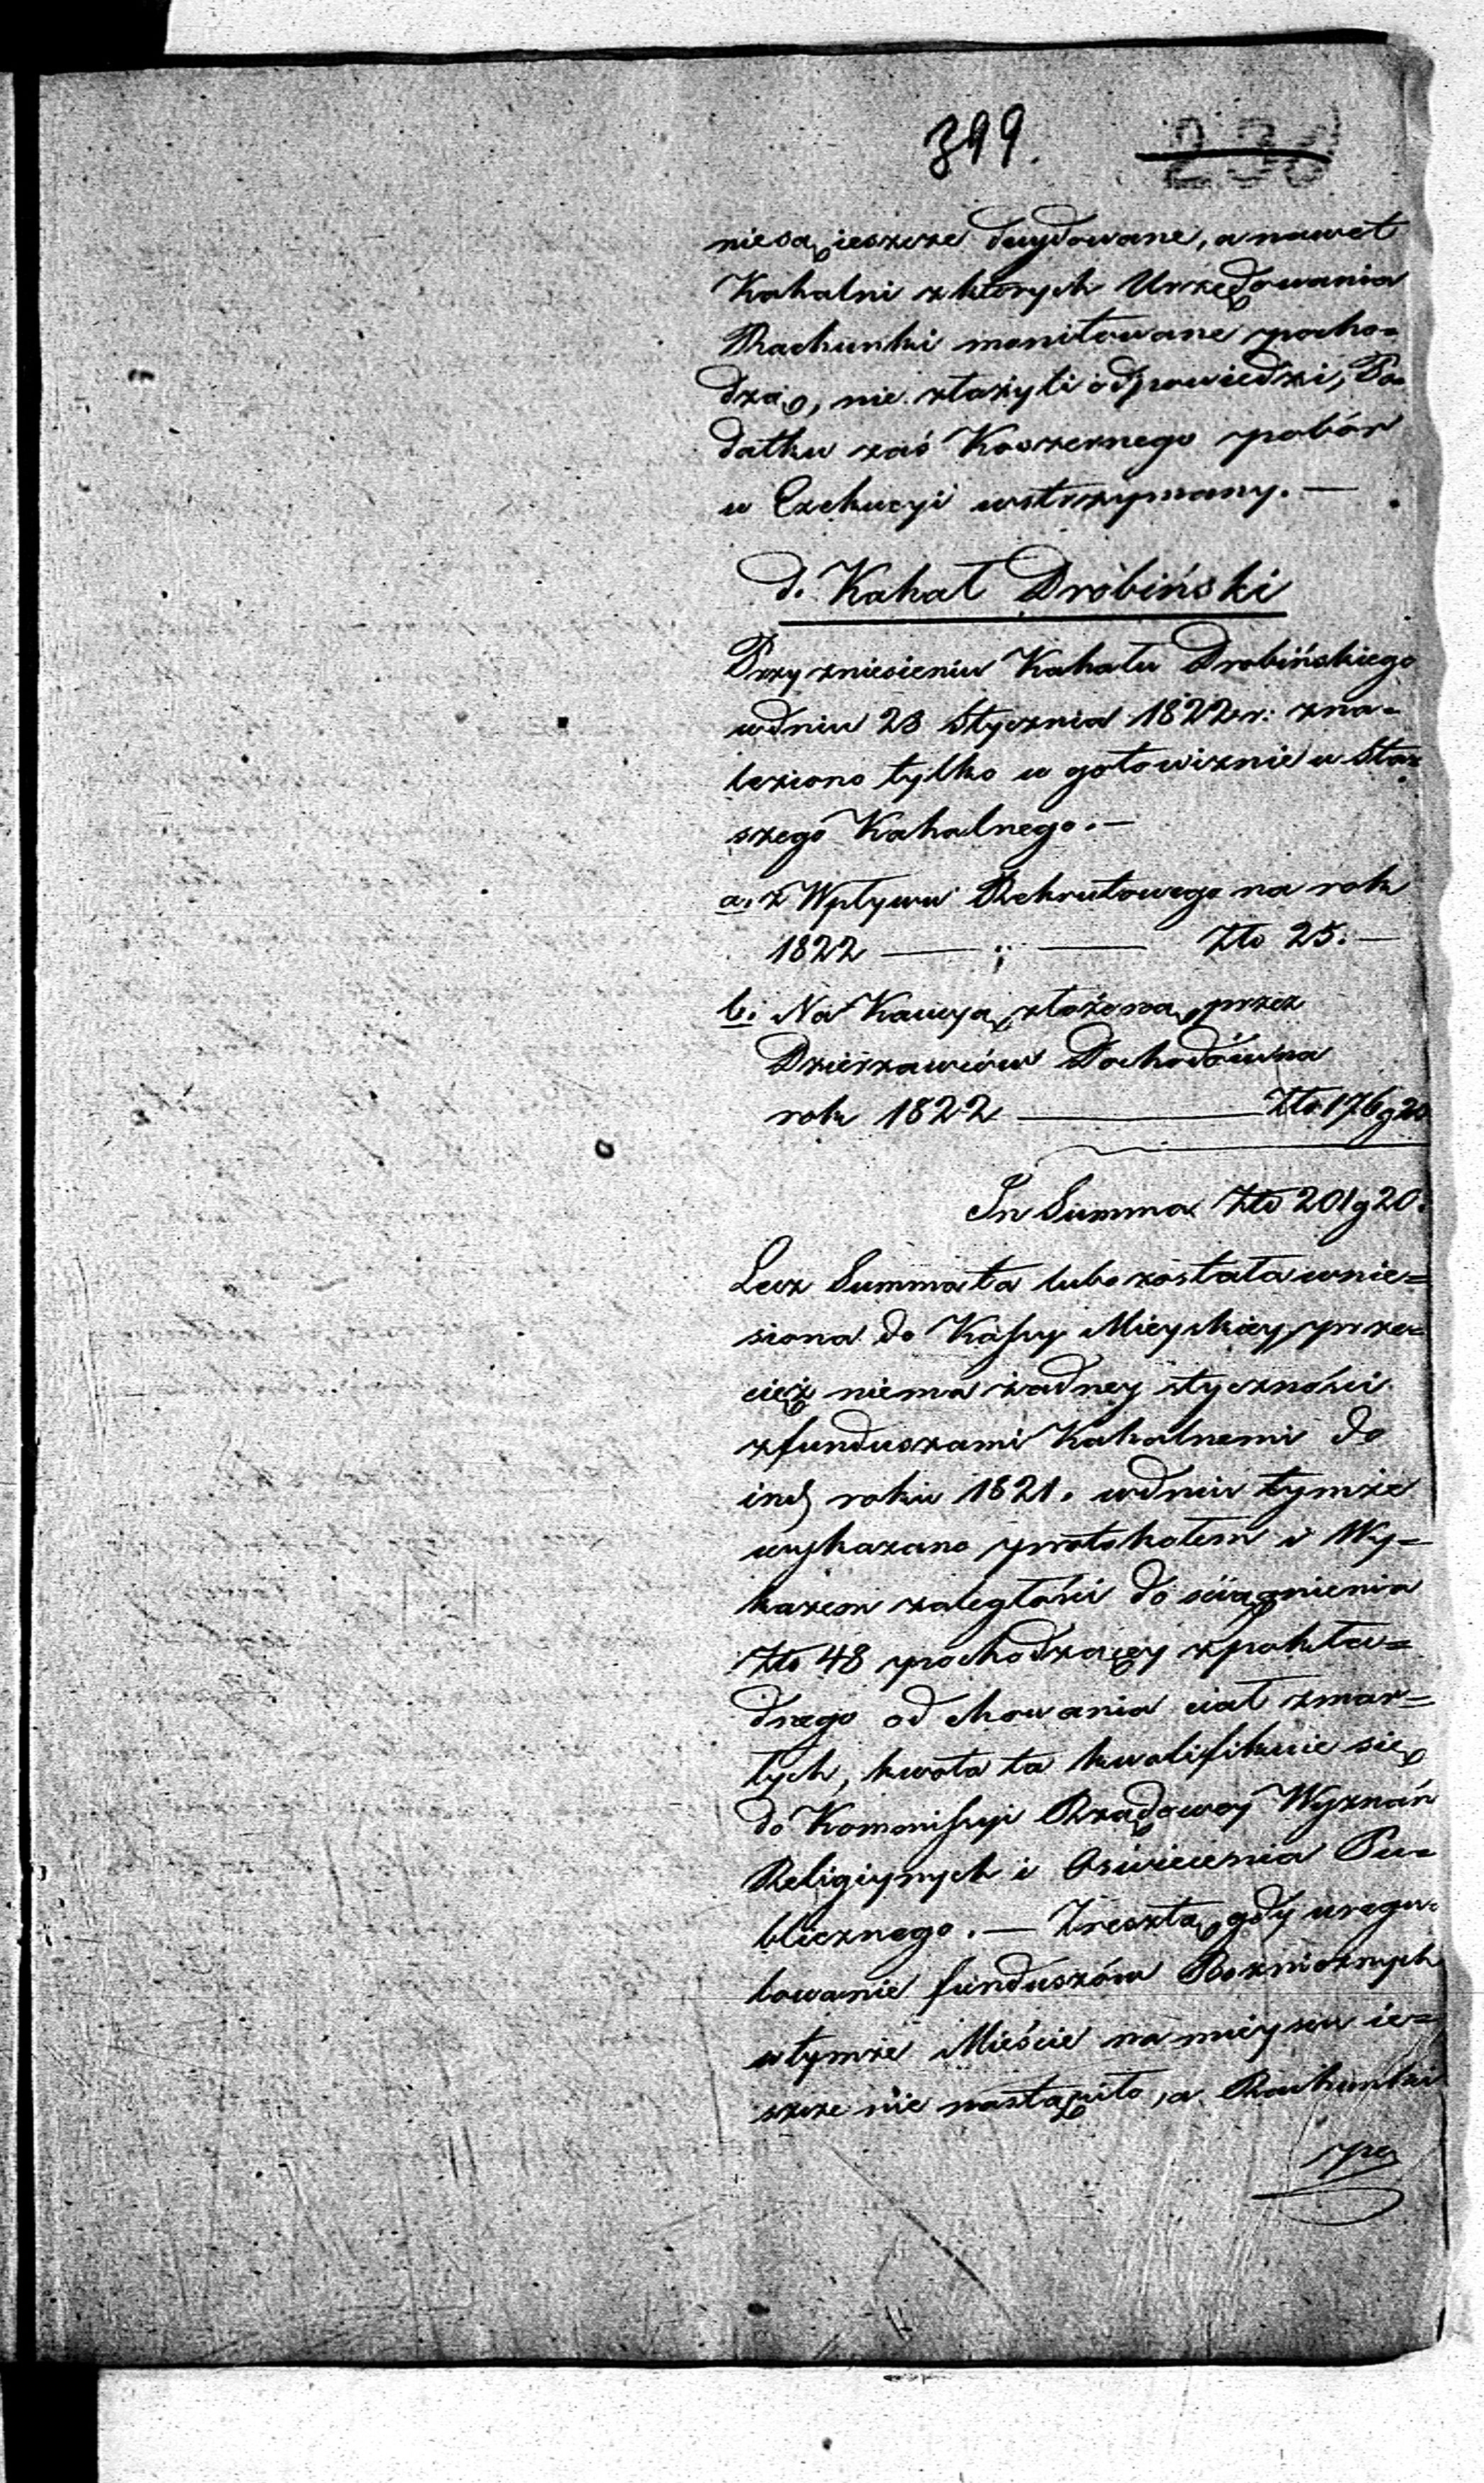 399.
niesą ieszcze decydowane, a nawet
Kahalni z których Urzędowania
Rachunki monitowane pocho=
dzą, nie złożyli odpowiedzi, Po=
datku zaś Koszernego pobór
w Exekucyi wstrzymany. —
d. Kahał Drobiński
Przy zniesieniu Kahału Drobińskiego
wdniu 28 Stycznia 1822 r: zna=
leziono tylko w gotowiznie u Star
szego Kahalnego. —
a. z Wpływu Rekrutowego na rok
1822 — „ — Złto 25. —
b. Na Kaucyą złożoną przez
Dzierżawców Dochodów na
rok 1822 — Złto 176 g 20
In Summa Złto 201 g 20.
Lecz Summa ta lubo została wnie=
siona do Kassy Mieyskiey, prze=
cięż niema żadney styczności
z funduszami Kahalnemi do
roku 1821. wdniu tymże
wykazano protokołem i Wy=
kazem zaległości do ściągnienia
Złto 48 pochodzącey z pokła=
dnego od chowania ciał zmar=
łych, kwota ta kwalifikuie się
do Kommissyi Rządowey Wyznań
Religiynych i Oświecenia Pu=
blicznego. — Zresztą gdy uregu=
lowanie funduszów Bożniczných
wtymże Mieście na mieyscu ie=
szcze nie nastąpiło, a Rachunki